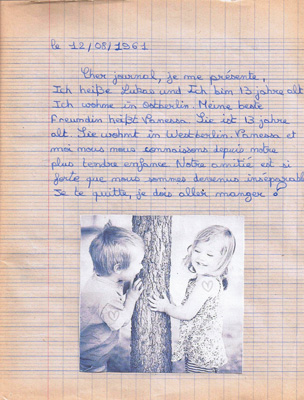 le 12/08/1961
Cher journal, je me présente,
Ich heiße Lukas und Ich bin 13 jahre alt
Ich wohne in Ostberlin. Meine beste
Freundin heißt Vanessa. Sie ist 13 jahre
alt. Sie wohnt in Westberlin. Vanessa et
moi nous nous connaissons depuis notre
plus tendre enfance. Notre amitié est si
forte que nous sommes devenus inséparable
Je te quitte, je dois aller manger !